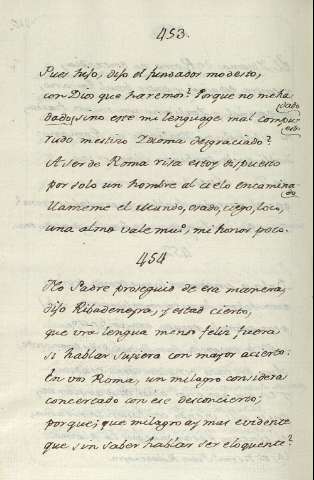 453.
Pues hijo, dijo el fundador modesto,
con Dios que haremos? Porque no me ha
dado
dado, sino este mi lenguage mal compu-
esto
rudo mestizo Idioma desgraciado?
A ser de Roma risa estoy dispuesto
por solo un hombre al cielo encamina-
do
llameme el Mundo, osado, ciego, loco,
una alma vale muo, mi honor poco.
454
No Padre proseguid de esa manera,
dijo Ribadeneyra, y estad cierto,
que vra lengua menos feliz fuera
si hablar supiera con mayor acierto:
En vos Roma, un milagro considera
concertado con ese desconcierto;
porque; que milagro ay mas evidente
que sin saber hablar ser eloquente?